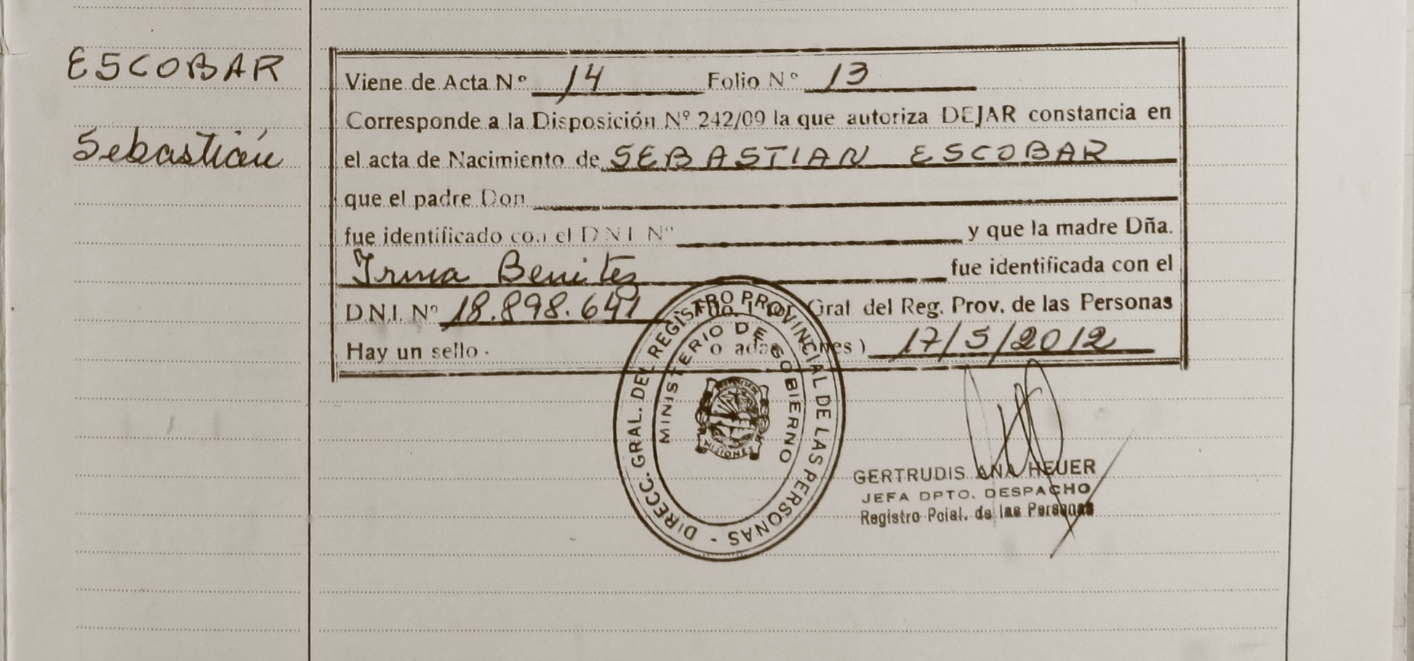 ESCOBAR
Sebastián
Viene de Acta Nº 14 Folio Nº 13
Corresponde a la Disposición Nº 242/09 la que autoriza DEJAR constancia en
el acta de Nacimiento de SEBASTIAN ESCOBAR
que el padre Don
fue identificado con el D.N.I. Nº y que la madre Dña.
Irma Benitez fue identificada con el
D.N.I. Nº 18.898.641 Gral del Reg. Prov. de las Personas
Hay un sello. 17/5/2012
DIRECC. GRAL. DEL REGISTRO PROVINCIAL DE LAS PERSONAS -
MINISTERIO DE GOBIERNO
MISIONES
GERTRUDIS ANA HEUER
JEFA DPTO. DESPACHO
Registro Pcial. de las Personas